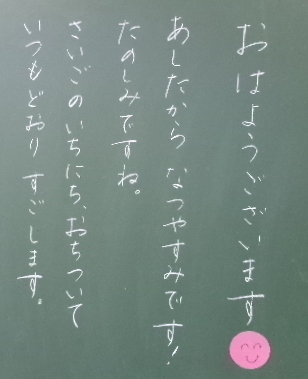 おはようございます
あしたから なつやすみです!
たのしみですね。
さいごのいちにち、おちついて
いつもどおり すごします。